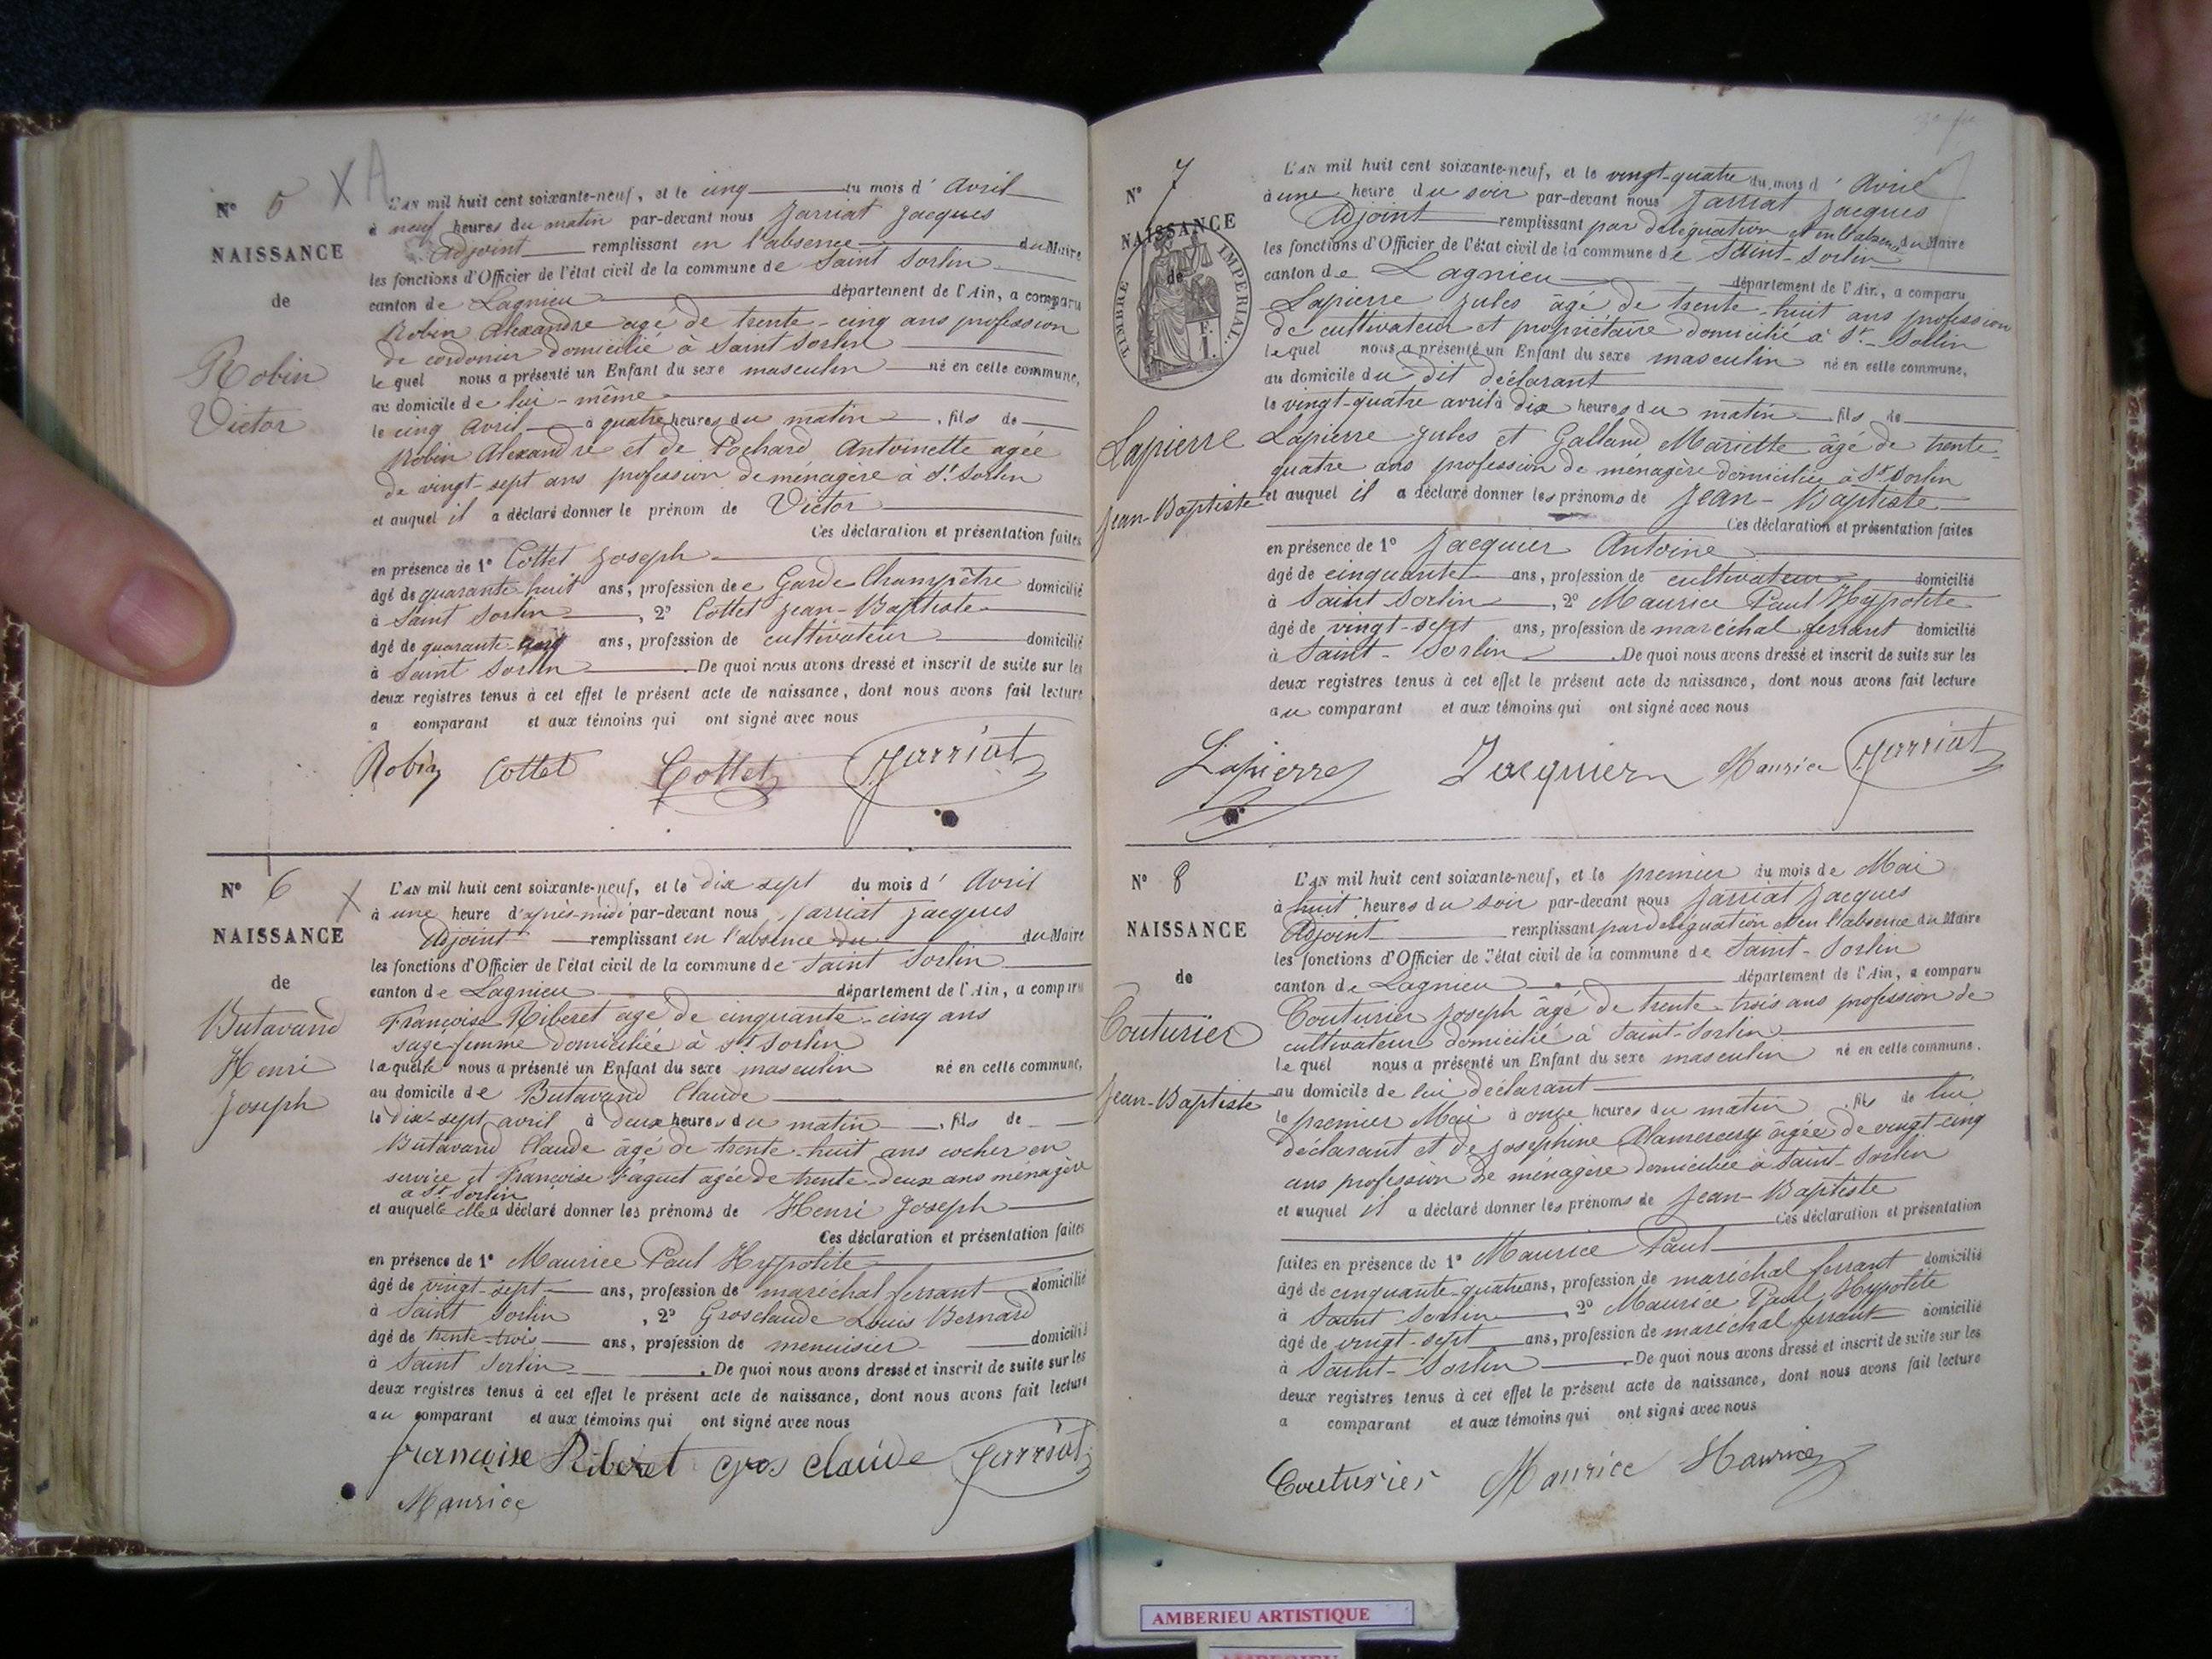 N° 5 X A
NAISSANCE
de
Robin
Victor
L'AN mil huit cent soixante-neuf, et le cinq du mois d' Avril
à neuf heures du matin par-devant nous Jarriat Jacques
Adjoint remplissant en l'absence du Maire
les fonctions d'Officier de l'état civil de la commune de Saint Sorlin
canton de Lagnieu département de l'Ain, a comparu
Robin Alexandre age de trente-cinq ans profession
de cordonier domicilié à Saint Sorlin
lequel nous a présenté un Enfant du sexe masculin né en cette commune,
au domicile de lui-même
le cinq Avril à quatre heures du matin, fils de
Robin Alexandre et de Pochard Antoinette agée
de vingt-sept ans profession de ménagère à St Sorlin
et auquel il a déclaré donner le prénom de Victor
Ces déclaration et présentation faites
en présence de 1° Cottet Joseph
âgé de quarante-huit ans, profession de Garde Champêtre domicilié
à Saint Sorlin, 2° Cottet Jean-Baptiste
âgé de quarante ans, profession de cultivateur domicilié
à Saint Sorlin. De quoi nous avons dressé et inscrit de suite sur les
deux registres tenus à cet effet le présent acte de naissance, dont nous avons fait lecture
a comparant et aux témoins qui ont signé avec nous
Robin Cottet Cottet Jarriat
N° 6 X
NAISSANCE
de
Butavand
Henri
Joseph
L'AN mil huit cent soixante-neuf, et le dix sept du mois d' Avril
à une heure d'après-midi par-devant nous Jarriat Jacques
Adjoint remplissant en l'absence du du Maire
les fonctions d'Officier de l'état civil de la commune de Saint Sorlin
canton de Lagnieu département de l'Ain, a comparu
Françoise Riberet age de cinquante-cinq ans
sage-femme domiciliée à St Sorlin
laquelle nous a présenté un Enfant du sexe masculin né en cette commune,
au domicile de Butavand Claude
le dix-sept avril à deux heures du matin, fils de
Butavand Claude âgé de trente-huit ans cocher en
service et Françoise Faguet agée de trente-deux ans ménagère
a St Sorlin
et auquel elle a déclaré donner les prénoms de Henri Joseph
Ces déclaration et présentation faites
en présence de 1° Maurice Paul Hypolite
âgé de vingt-sept ans, profession de maréchal ferrant domicilié
à Saint Sorlin, 2° Grosclaude Louis Bernard
âgé de trente-trois ans, profession de menuisier domicilié
à Saint Sorlin. De quoi nous avons dressé et inscrit de suite sur les
deux registres tenus à cet effet le présent acte de naissance, dont nous avons fait lecture
au comparant et aux témoins qui ont signé avec nous
françoise Riberet gros claude Jarriat
Maurice
N° 7
NAISSANCE
de
TIMBRE IMPERIAL.
1 F.
Lapierre
Jean-Baptiste
L'AN mil huit cent soixante-neuf, et le vingt-quatre du mois d' Avril
à une heure du soir par-devant nous Jarriat Jacques
Adjoint remplissant par délégation et en l'absence du Maire
les fonctions d'Officier de l'état civil de la commune de Saint-Sorlin
canton de Lagnieu département de l'Ain, a comparu
Lapierre Jules âgé de trente-huit ans profession
de cultivateur et propriétaire domicilié à St-Sorlin
lequel nous a présenté un Enfant du sexe masculin né en cette commune,
au domicile du dit déclarant
le vingt-quatre avril à dix heures du matin fils de
Lapierre Jules et Galland Mariette âgé de trente-
quatre ans profession de ménagère domiciliée à St Sorlin
et auquel il a déclaré donner les prénoms de Jean-Baptiste
Ces déclaration et présentation faites
en présence de 1° Jacquier Antoine
âgé de cinquante ans, profession de cultivateur domicilié
à Saint Sorlin, 2° Maurice Paul Hypolite
âgé de vingt-sept ans, profession de maréchal ferrant domicilié
à Saint-Sorlin. De quoi nous avons dressé et inscrit de suite sur les
deux registres tenus à cet effet le présent acte de naissance, dont nous avons fait lecture
au comparant et aux témoins qui ont signé avec nous
Lapierre Jacquier Maurice Jarriat
N° 8
NAISSANCE
de
Couturier
Jean-Baptiste
L'AN mil huit cent soixante-neuf, et le premier du mois de Mai
à huit heures du soir par-devant nous Jarriat Jacques
Adjoint remplissant par délégation et en l'absence du Maire
les fonctions d'Officier de l'état civil de la commune de Saint-Sorlin
canton de Lagnieu département de l'Ain, a comparu
Couturier Joseph âgé de trente-trois ans profession de
cultivateur domicilié à Saint-Sorlin
lequel nous a présenté un Enfant du sexe masculin né en cette commune.
au domicile de lui déclarant
le premier Mai à onze heures du matin fils de lui
déclarant et de Josephine âgée de vingt-cinq
ans profession de ménagère domiciliée à Saint-Sorlin
et auquel il a déclaré donner les prénoms de Jean-Baptiste
Ces déclaration et présentation
faites en présence de 1° Maurice Paul
âgé de cinquante-quatre ans, profession de maréchal ferrant domicilié
à Saint Sorlin, 2° Maurice Paul Hypolite
âgé de vingt-sept ans, profession de maréchal ferrant domicilié
à Saint-Sorlin. De quoi nous avons dressé et inscrit de suite sur les
deux registres tenus à cet effet le présent acte de naissance, dont nous avons fait lecture
a comparant et aux témoins qui ont signé avec nous
Couturier Maurice Maurice
AMBERIEU ARTISTIQUE